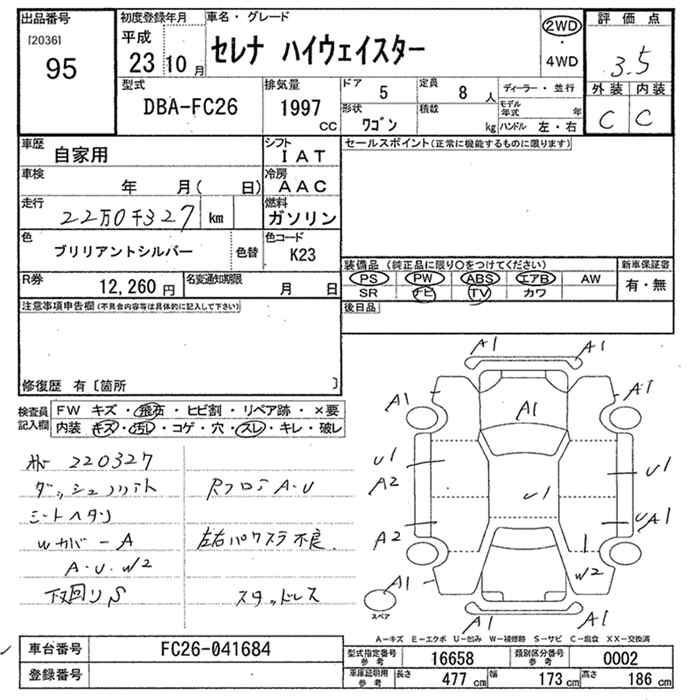 出品番号 初度登録年月 車名・グレード 2WD・4WD 評価点
[2036] 平成
95 23年10月 セレナ ハイウェイスター 3.5
型式 排気量 ドア 5 定員 8人 ディーラー・並行 外装 内装
DBA-FC26 1997cc 形状 ワゴン 積載 kg モデル年式 年 C C
ハンドル 左・右
車歴 自家用 シフト IAT セールスポイント(正常に機能するものに限ります)
車検 年 月( 日) 冷房 AAC
走行 22万0千327 km 燃料 ガソリン
色 ブリリアントシルバー 色替 色コード K23
装備品 (純正品に限り○をつけてください) 新車保証書
R券 12,260円 名変通知期限 月 日 PS PW ABS エアB AW 有・無
SR ナビ TV カワ
注意事項申告欄(不具合内容等は具体的に記入して下さい) 後日品
修復歴 有〔箇所 〕
検査員記入欄 FW キズ・飛石・ヒビ割・リペア跡・×要
内装 キズ・汚レ・コゲ・穴・スレ・キレ・破レ
220327
シートヘタリ
Wカバー A
A・U・W2
下回りS
RフロアA・U
左右パワスラ不良
スタッドレス
A1 A1
A1 A1 A1
U1 U1 U1
A2 UA1
A2 W2
A1 A1 A1
スペア
A-キズ E-エクボ U-凹み W-補修跡 S-サビ C-腐食 XX-交換済
車台番号 FC26-041684 型式指定番号 参考 16658 類別区分番号 参考 0002
登録番号 車庫証明用 参考 長さ 477cm 幅 173cm 高さ 186cm